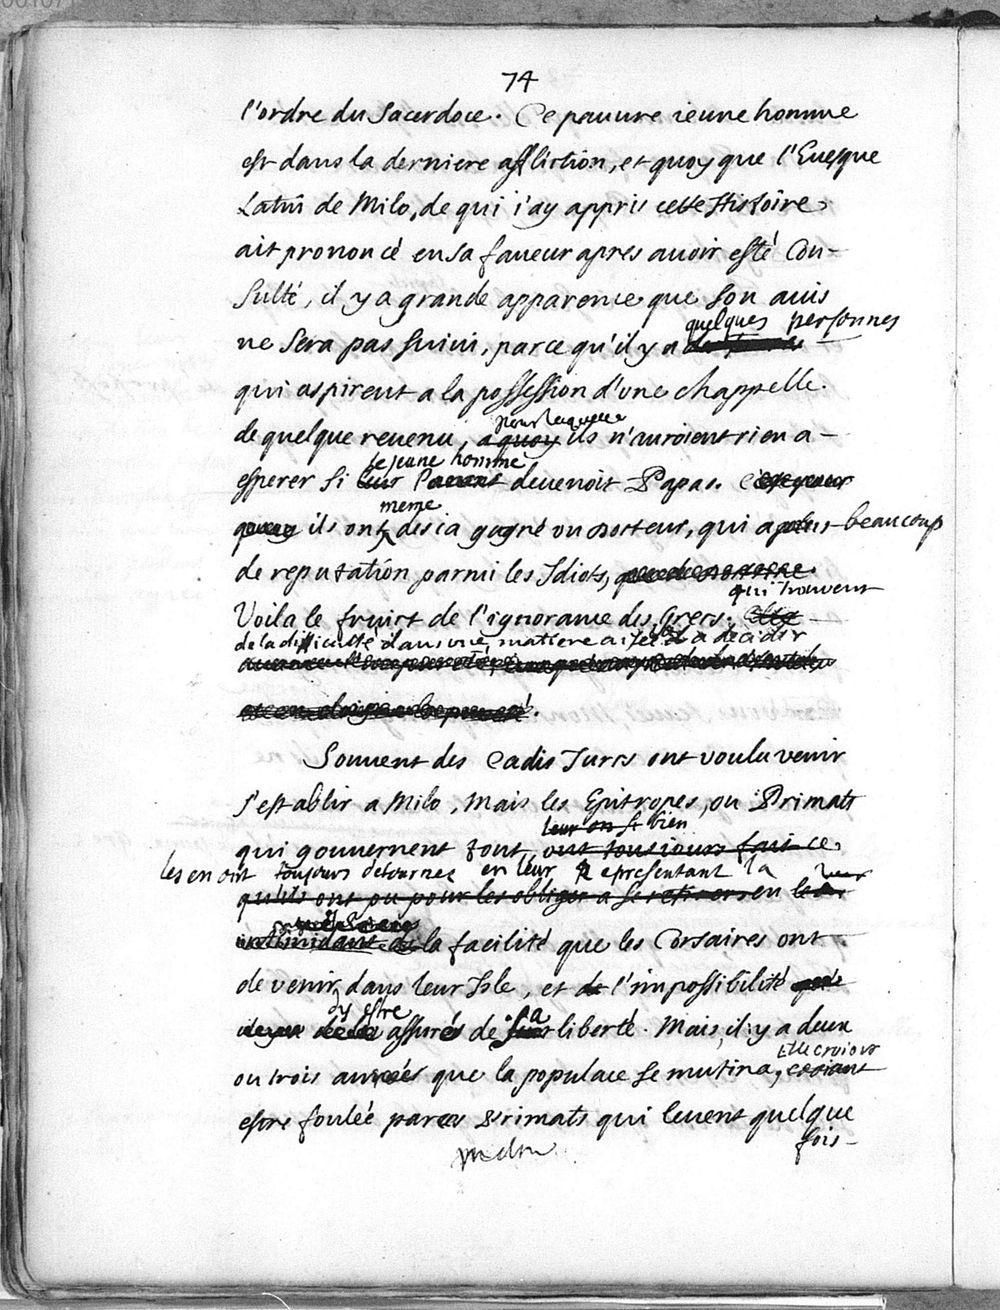 74
l'ordre du Sacerdoce. Ce pauure ieune homme
est dans la derniere affliction, et quoy que l'Euesque
Latin de Milo, de qui i'ay appris cette Histoire
ait prononcé en sa faueur apres auoir esté Con-
sulté, il y a grande apparence que son auis
quelques personnes
ne sera pas suiui, parce qu'il y a
qui aspirent a la possession d'une chappelle
pour laquelle
de quelque reuenu, a quoy ils n'auroient rien a-
le jeune homme
esperer si leur Parent deuenoit Papas.
meme
ils ont desia gagné un Docteur, qui a plus beaucoup
de reputation parmi les Idiots,
qui trouvent
Voila le fruict de l'ignorance des Grecs.
de la difficulté dans une matiere aisée a decider
Souuent des Cadis Turcs ont voulu venir
s'establir a Milo, Mais les Epitropes, ou Primats
leur on si bien
qui gouuernent tout, ont tousiours fait ce
les en ont toujours détournez en leur Representant la
qu'ils ont pu pour les obliger a se retirer en
intimidant de la facilité que les Corsaires ont
de venir dans leur Isle, et de l'impossibilité
dy estre sa
assurés de liberté. Mais, il y a deux
Elle croiant
ou trois années que la populace se mutina, croiant
estre foulée par Primats qui leuent quelque
fois-